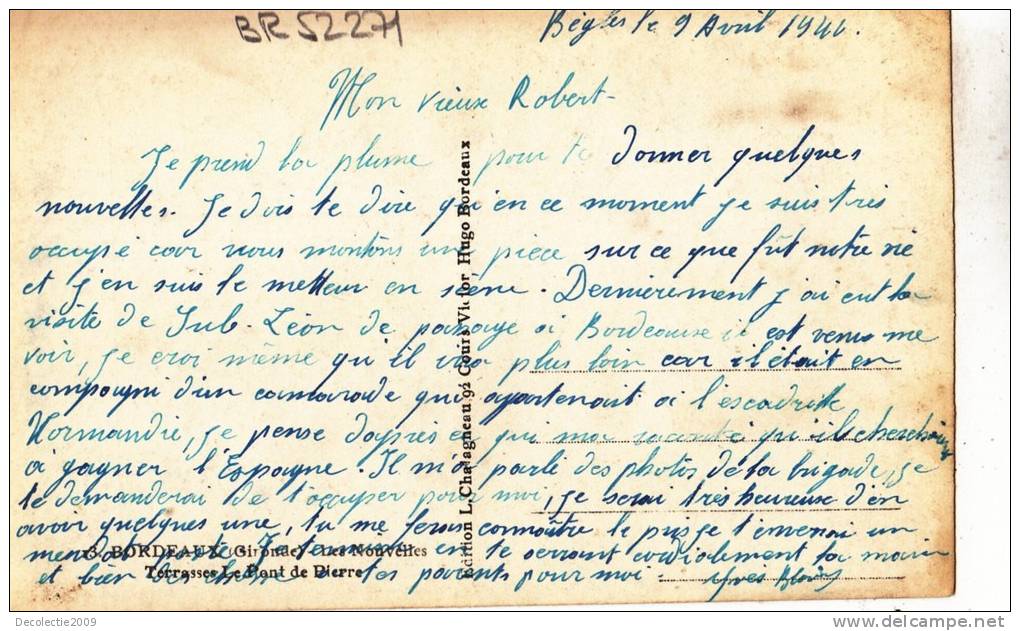 BR 52271
Bègles le 9 Avril 1946.
Mon vieux Robert
Je prend la plume pour te donner quelques
nouvelles. Je dois te dire qu'en ce moment je suis très
occupé car nous montons une pièce sur ce que fût notre vie
et j'en suis le metteur en scène. Dernièrement j'ai eut la
visite de Jub. Léon de passage à Bordeause il est venu me
voir, je croi même qu'il vas plus loin car il était en
compagni d'un camarade qui appartenait à l'escadrille
Normandie, je pense d'après ce qui m'a raconté qu'il cherchais
à gagner l'Espagne. Il m'a parlé des photos de la brigade, je
te demanderai de t'occuper pour moi, je serai très heureuse d'en
avoir quelques une, tu me feras connoître le puis je t'enverai un
mandat je termine en te serrant cordialement la main
et bien le à tes parents pour moi. Yves
3. BORDEAUX (Gironde) - Les Nouvelles
Terrasses Le Pont de Pierre
Edition L. Chatagneau 92 Cours Victor Hugo Bordeaux
Decolectie2009
www.delcampe.net